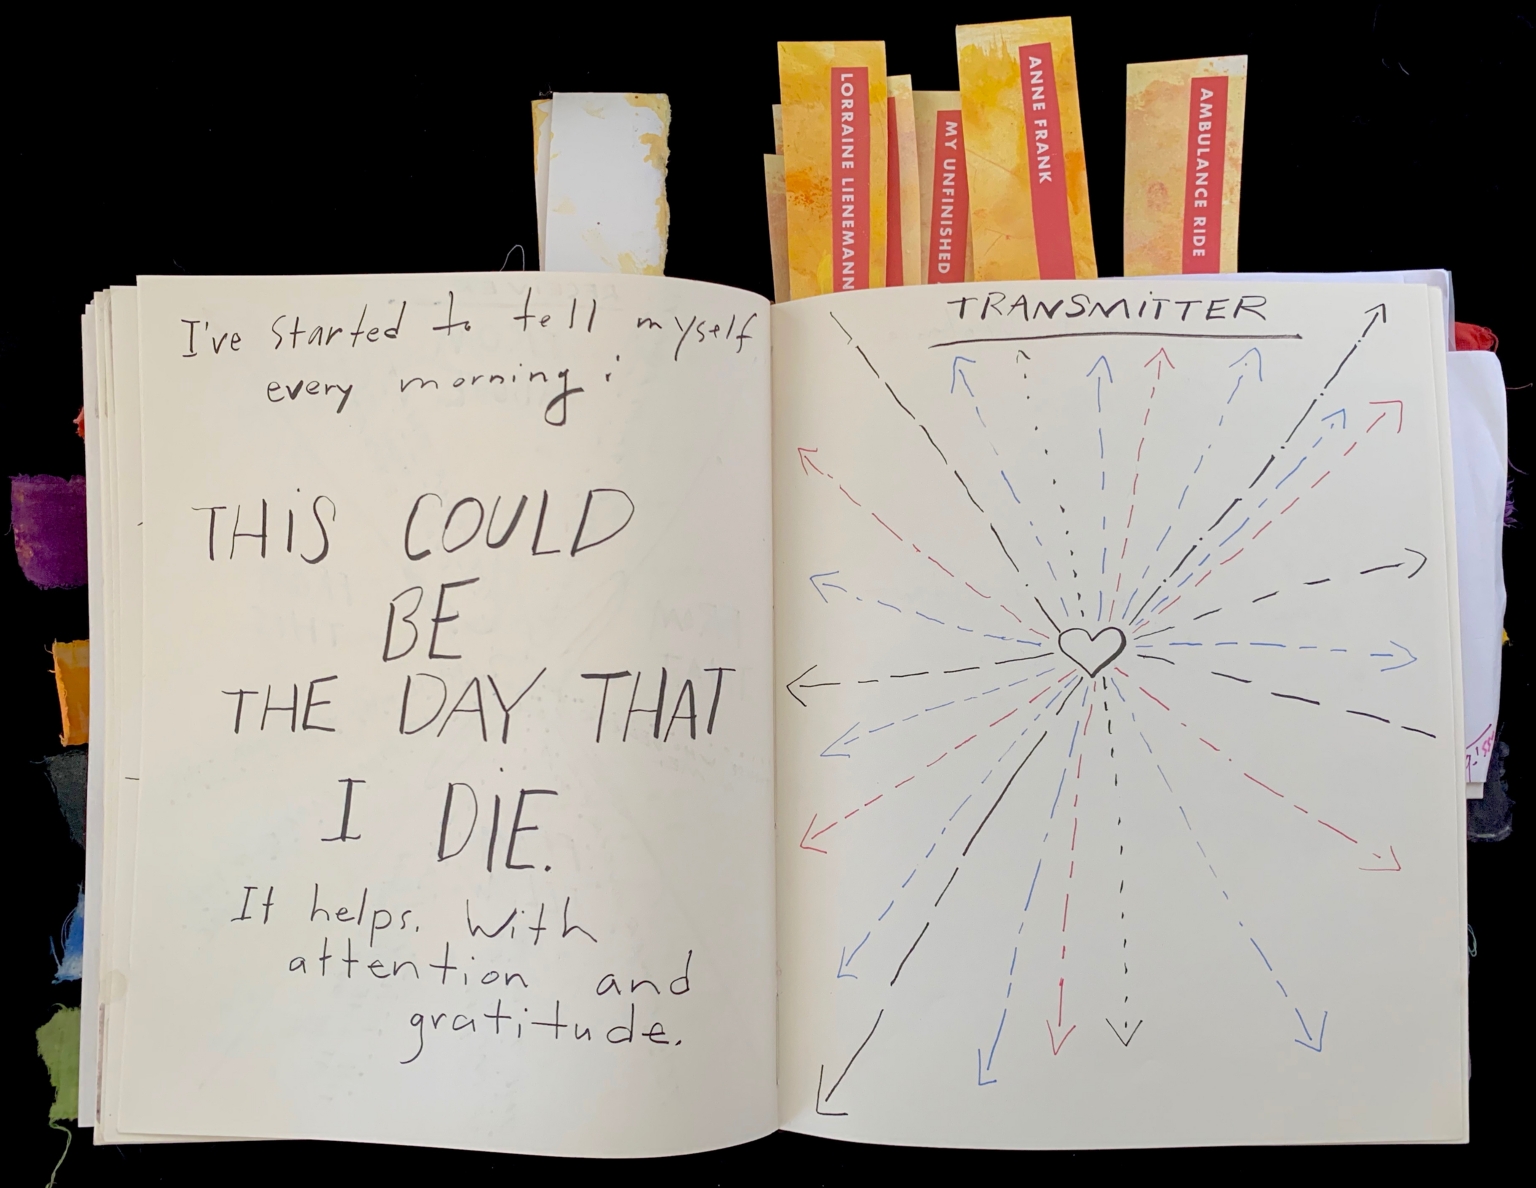 LORRAINE LIENEMANN
MY UNFINISHED
ANNE FRANK
AMBULANCE RIDE
I've started to tell myself
every morning:
THIS COULD
BE
THE DAY THAT
I DIE.
It helps. With
attention and
gratitude.
TRANSMITTER